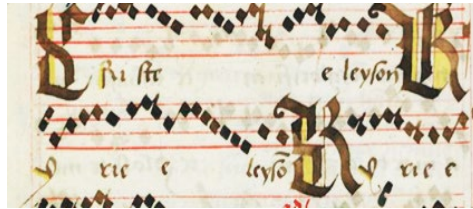 C ri ste e leyson K
y rie e leysō K y rie e